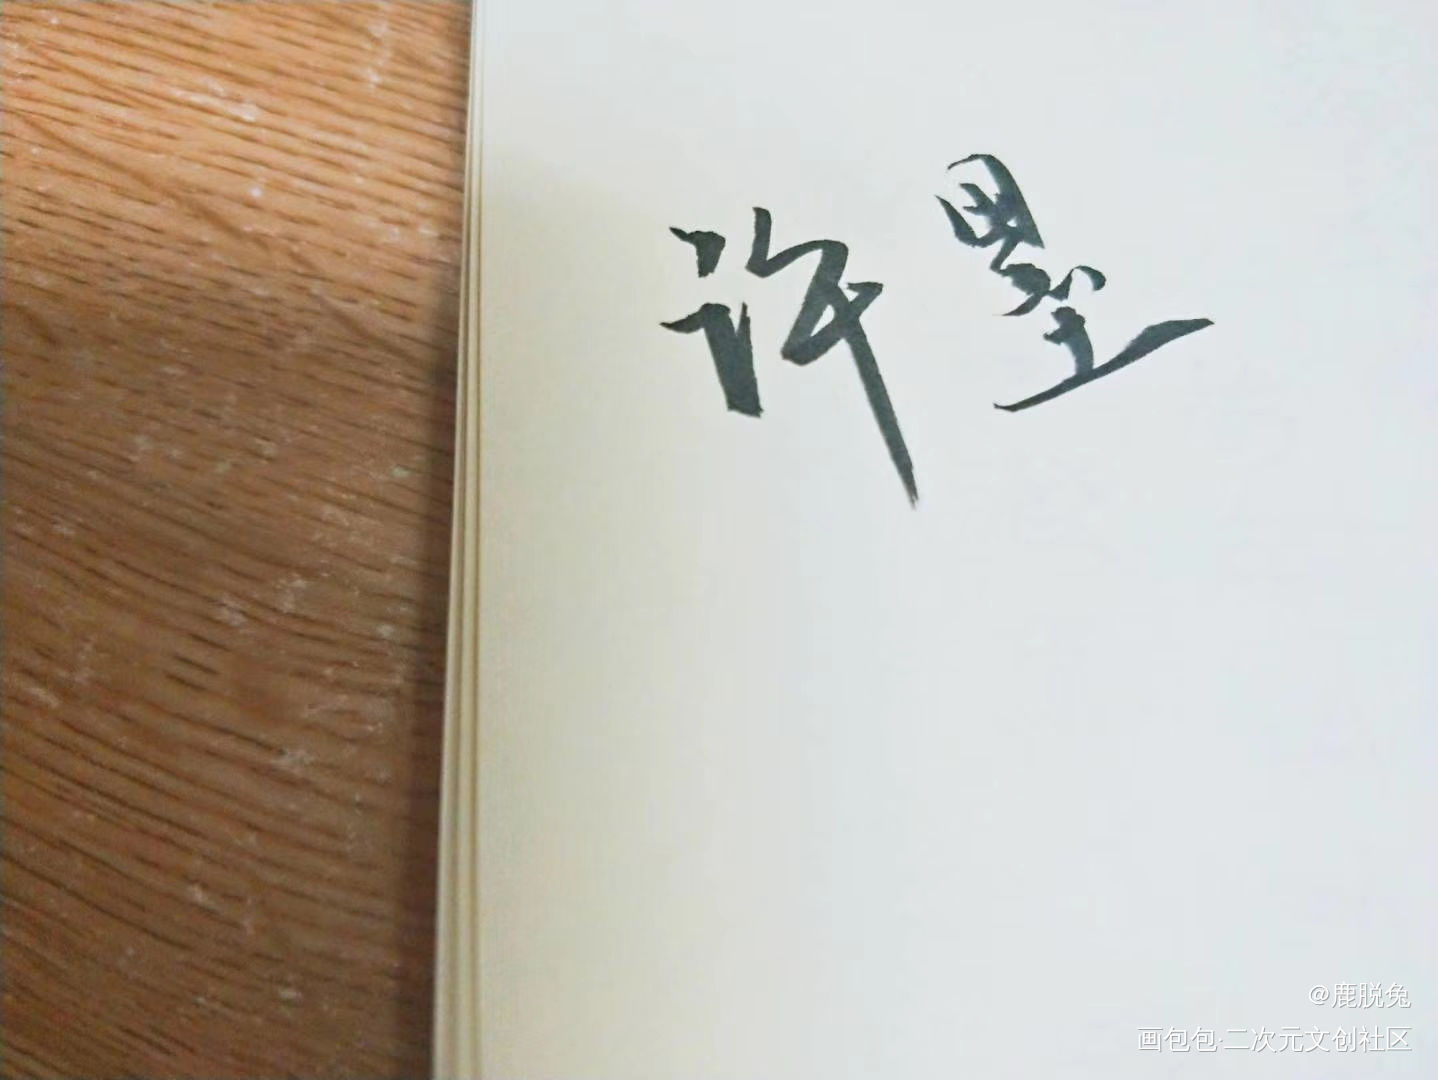 许墨
@鹿脱兔
画包包·二次元文创社区